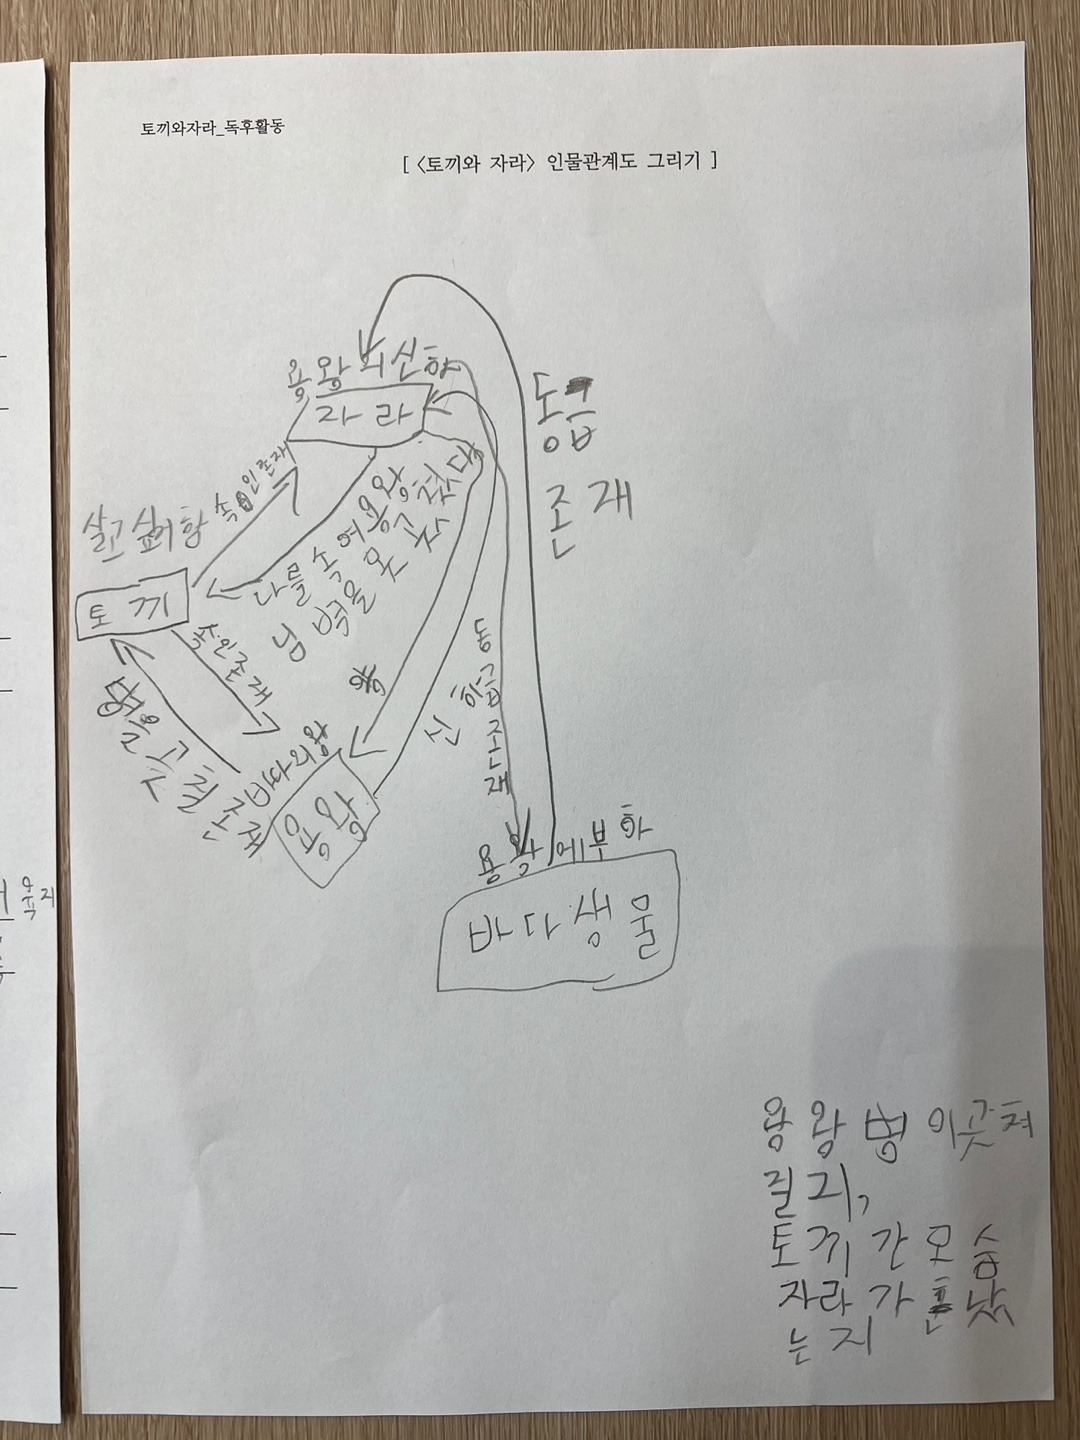 토끼와자라_독후활동
[ <토끼와 자라> 인물관계도 그리기 ]
용왕의신하
자라
동급
존재
살고싶어함
속인존재
토끼
다를속여용왕
님병을못고쳤다
속은존재
병을곳칠존재
바다의왕
용왕
신하
동급존재
용왕에부하
바다생물
용왕병이곳쳐
질지,
토끼간모습
자라가혼났
는지
육지